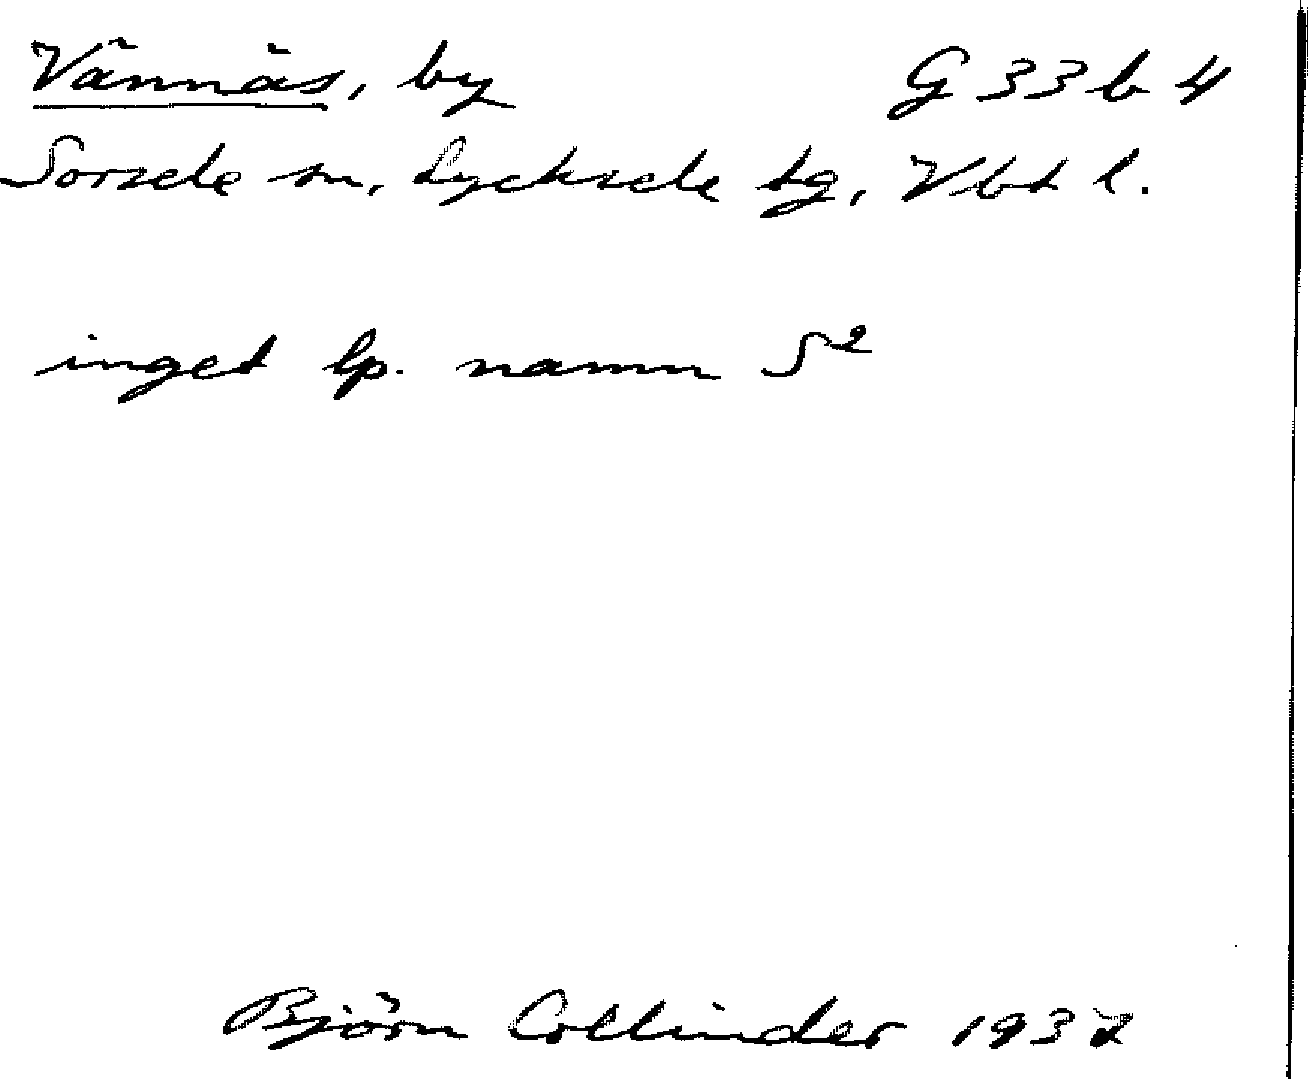 Vännäs, by G 33 b 4
Sorsele sn, Lycksele tg, Vbt l.
inget lp. namn S²
Björn Collinder 1932